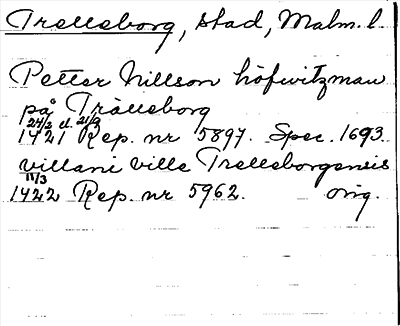 Trelleborg, stad, Malm. l.
Petter Nillson höfwitzman
på Trälleborg
24/2 el. 21/2
1421 Rep. nr 5897. Spec. 1693.
villani ville Trelleborgensis
11/3
1422 Rep. nr 5962. orig.